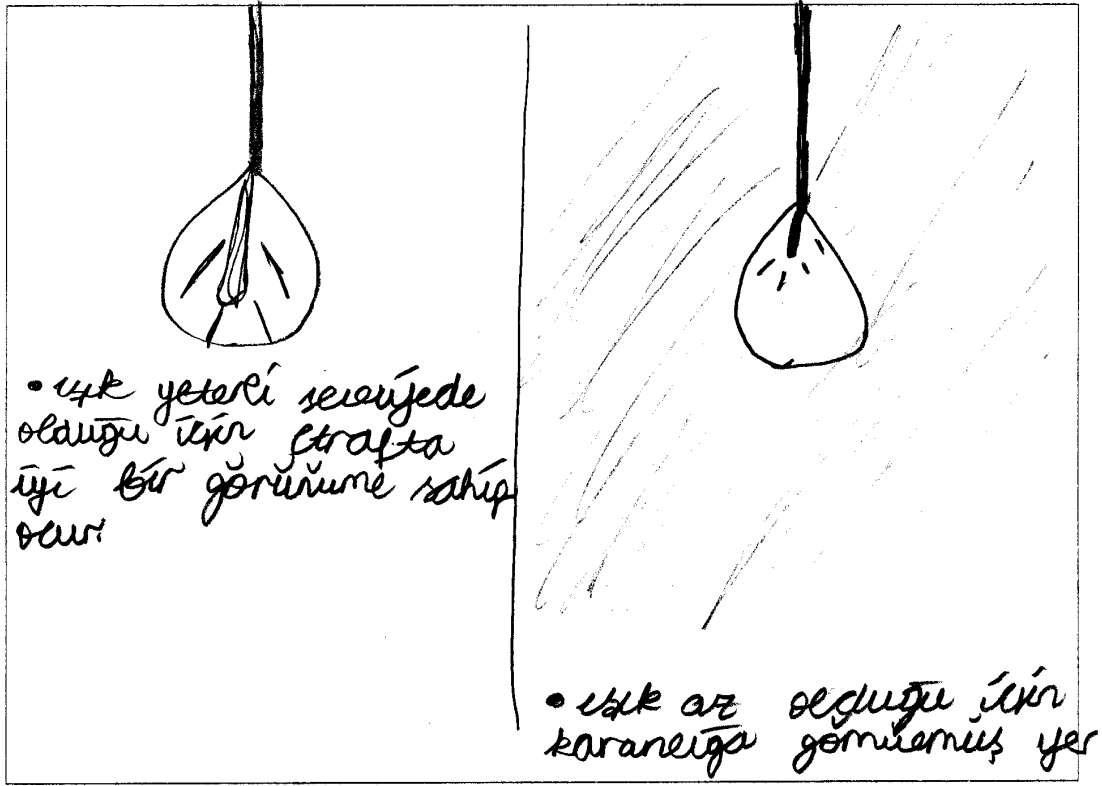 • ışık yeterli seviyede
olduğu için etrafta
iyi bir görünüme sahip
olur.
• ışık az olduğu için
karanlığa gömülmüş yer